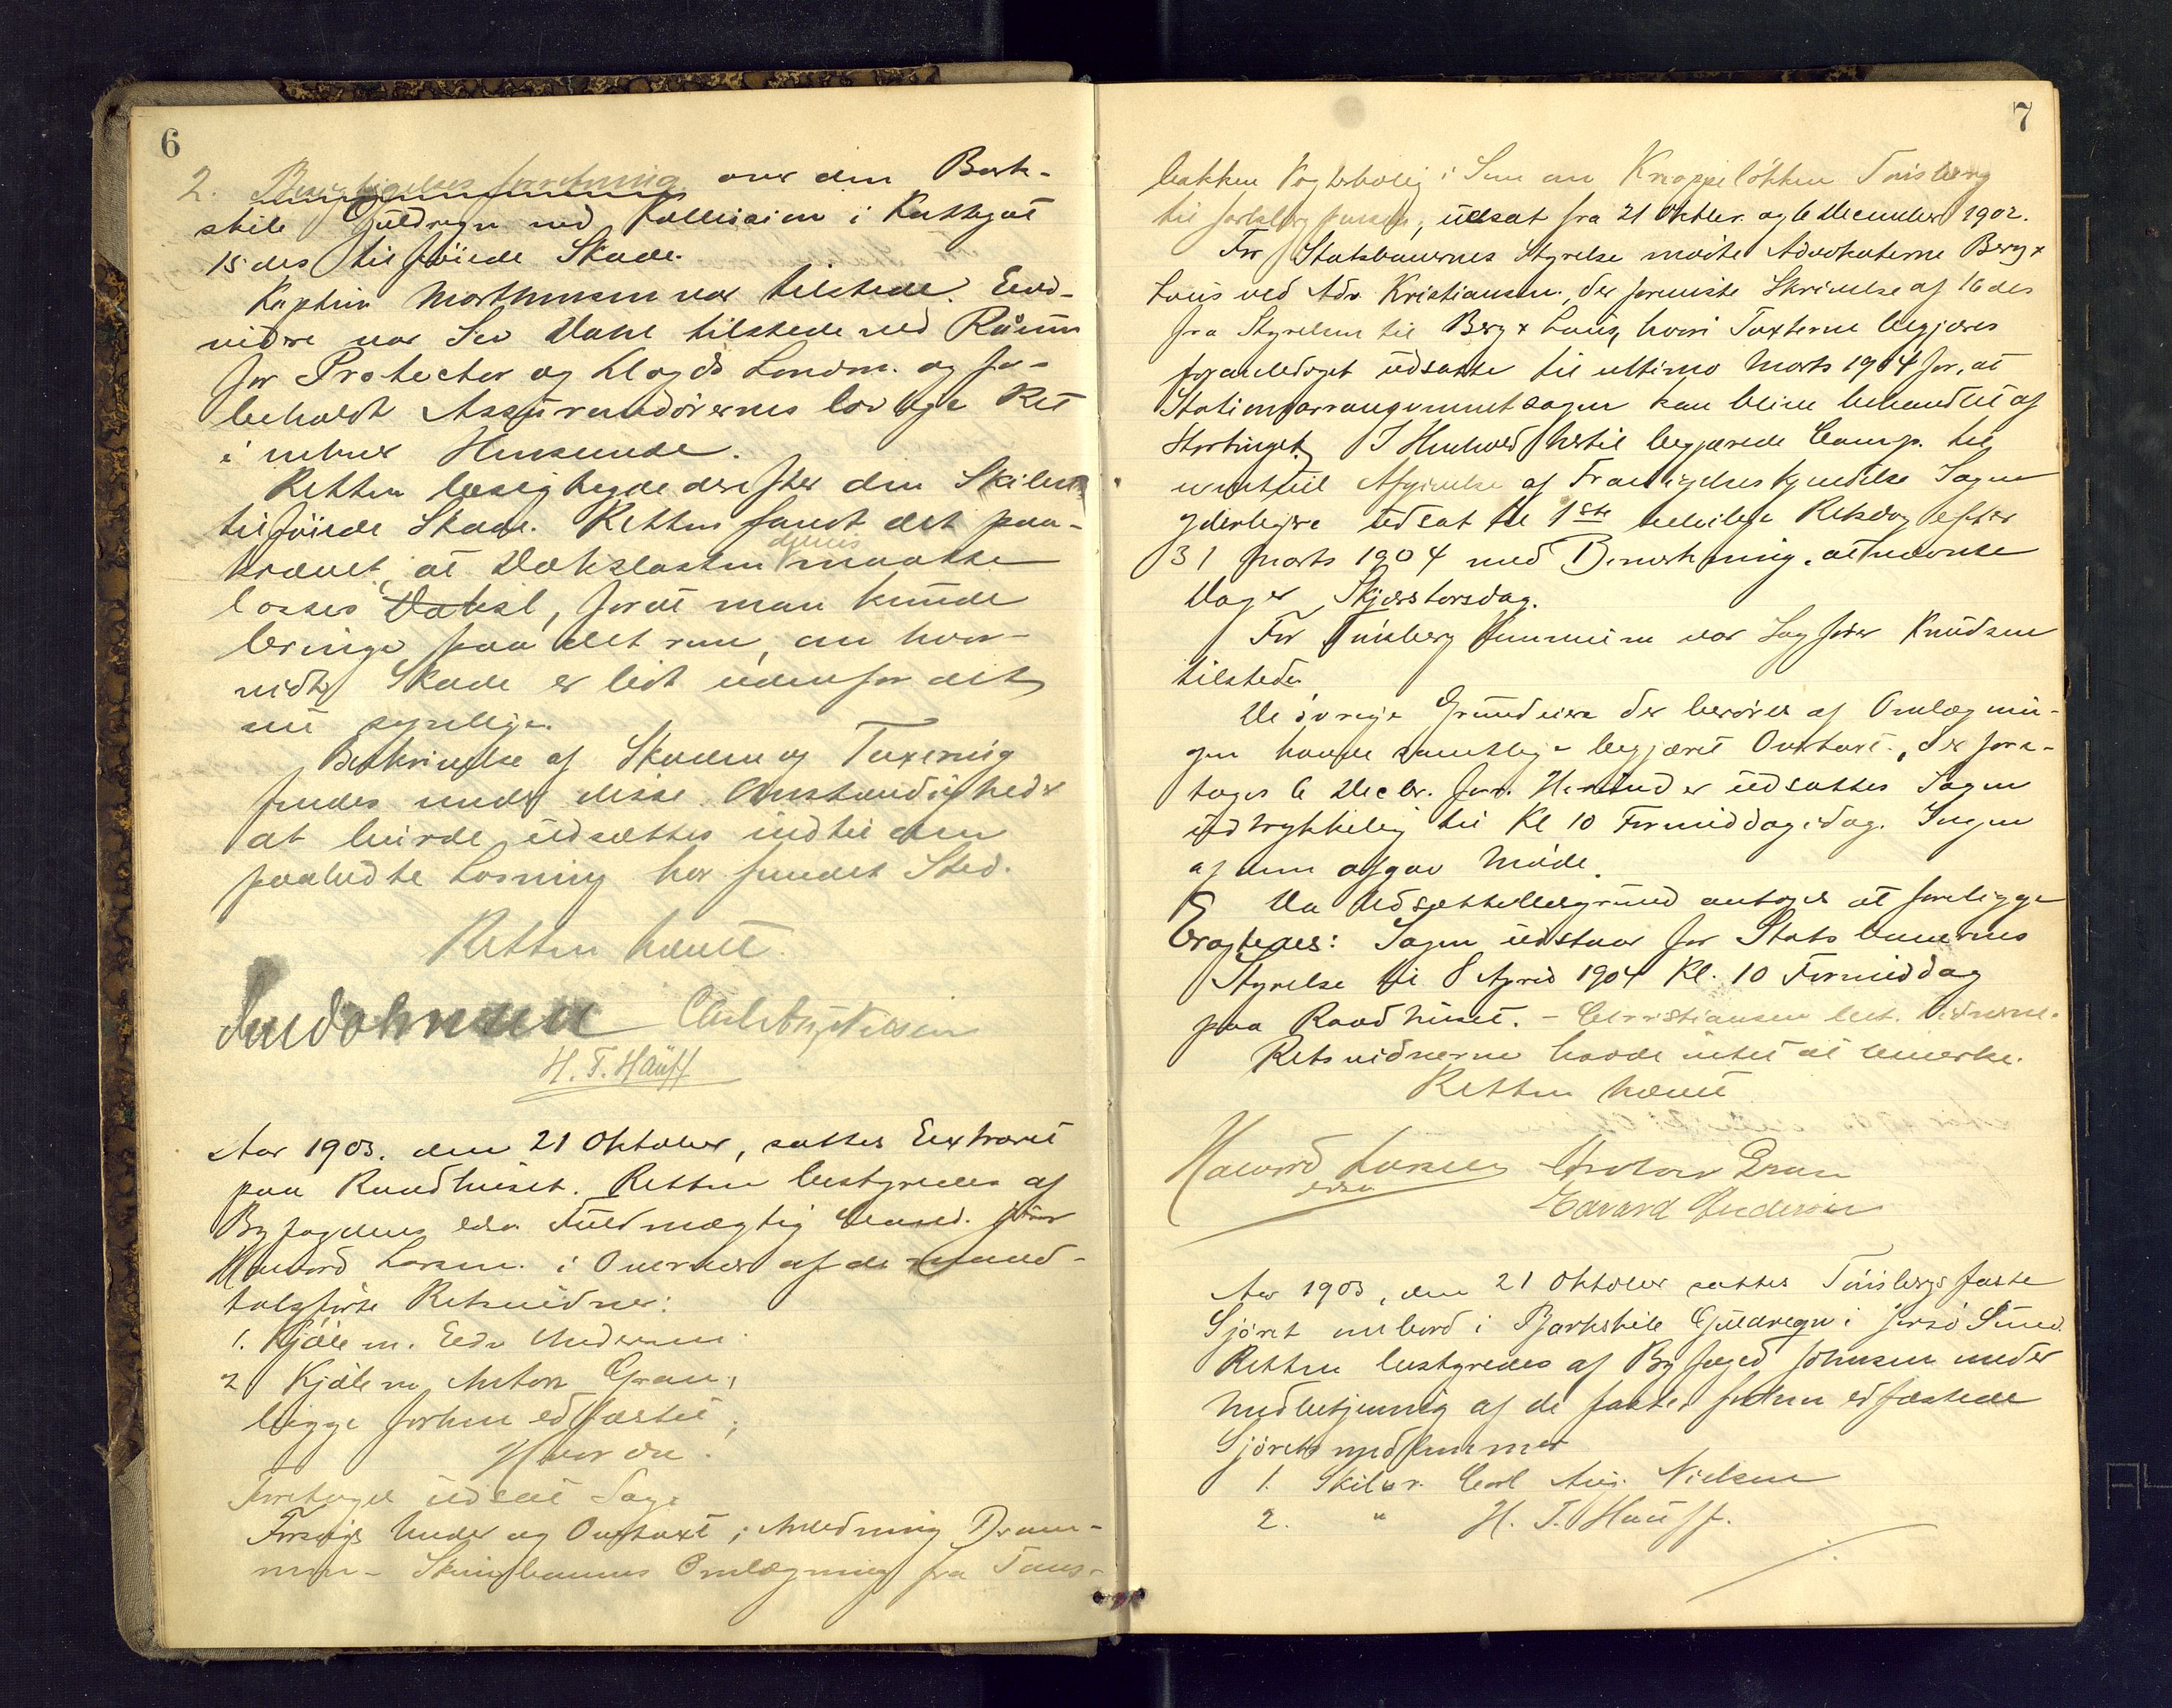 6
2. Besigtigelsesforretning over den Bark-
skib Guldregn ved Kollision i Kattegat
15 des tilføiede Skade.
Kaptein Morthensen var tilstede. End-
videre var Dahl tilstede ved
for Protector og Lloyds London. og for-
beholdt Assurandørernes lovlige Ret
i enhver Henseende.
Retten besigtigede derefter den Skibet
tilføiede Skade. Retten fandt det paa-
krævet, at Dækslasten delvis maatte
losses, forat man kunde
bringe paa det rene, om hvor-
vidt Skade er lidt udenfor det
nu synlige.
Beskrivelse af Skaden og Taxering
fandtes under disse Omstændigheder
at burde udsættes indtil den
paabudte Losning har fundet Sted.
Retten hævet.
Carl Aug. Nielsen
H. T. Hauff
Aar 1903. den 21 Oktober, sattes Extraret
paa Raadhuset. Retten bestyredes af
Byfogdens eds. Fuldmægtig
Havard Larsen i Overvær af de mand-
talsførte Retsvidner:
1. Kjøbm. Edv Andersen.
2 Kjøbm Anton Gran,
begge forhen edfæstet;
Hvorda:
Foretoges udsat Sag:
Forsøgs Under og Overtaxt i Anledning Dram-
men - Skiensbanens Omlægning fra Tøns-
7
bakken Vogterbolig i Sem om Knappeløkken Tønsberg
til Jarlsberg, udsat fra 21 Oktbr. og 6 December 1902.
For Statsbanernes Styrelse mødte Advokaterne Berg &
Lous ved Adv. Kristiansen, der fremlagte Skrivelse af 16 des
fra Styrelsen til Berg & Lous, hvori Taxterne begjæres
foranlediget udsatte til ultimo Marts 1904 for, at
Stationsarrangementsagen kan blive behandlet af
Stortinget. I Henhold hertil begjærede Comp. til
eventuel Afgivelse af Fravigelseskjendelse Sagen
yderligere udsat til 1ste beleilige Retsdag efter
31 Marts 1904 med Bemerkning, at nævnte
Dag er Skjærtorsdag.
For Tønsberg Kommune var Sagfører Knudsen
tilstede.
De øvrige Grundeiere der berøres af Omlægnin-
gen havde samtlige begjæret Overtaxt, der fore-
toges 6 Decbr. Herunder udsattes Sagen
udtrykkelig til Kl 10 Formiddag idag. Ingen
af dem afgav Møde.
Da Udsættelsesgrund antages at foreligge
Eragtedes: Sagen udstaar for Statsbanernes
Styrelse til 8 April 1904 Kl. 10 Formiddag
paa Raadhuset. - Christiansen bet. Vidnerne.
Retsvidnerne havde intet at bemerke.
Retten hævet
Havard Larsen Anton Gran
edsv Edvard Andersen
Aar 1903, den 21 Oktober sattes Tønsbergs faste
Sjøret ombord i Barkskib Guldregn i Jersø Sund.
Retten bestyredes af Byfoged Johnsen under
Medbetjening af de faste forhen edfæstede
Sjøretsmedlemmer
1. Skibsr. Carl Aug. Nielsen
2. " H. T. Hauff.